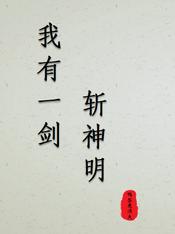 我有一剑
斩神明